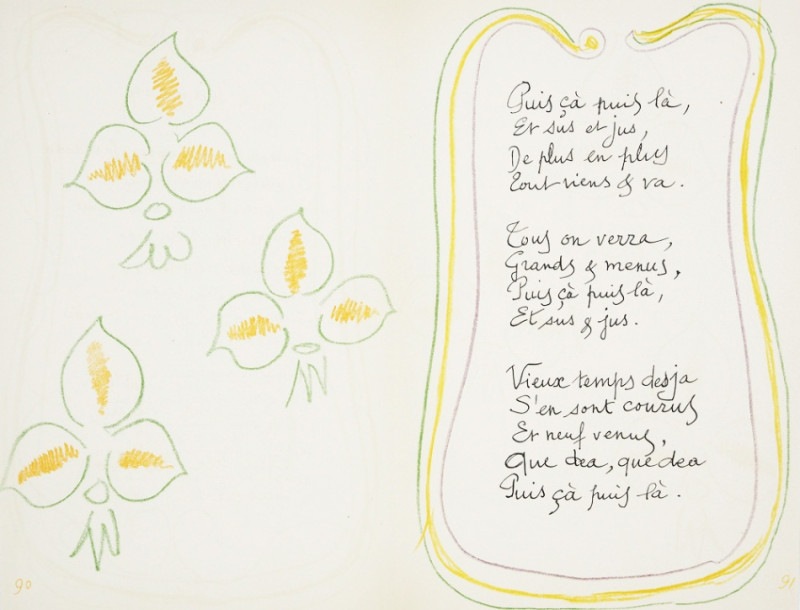 Puis çà puis là,
Et sus et jus,
De plus en plus
Tout viens & va.
Tous on verra,
Grands & menus,
Puis çà puis là,
Et sus & jus.
Vieux temps desja
S'en sont courus
Et neuf venus,
Que dea, que dea
Puis çà puis là.
90
91